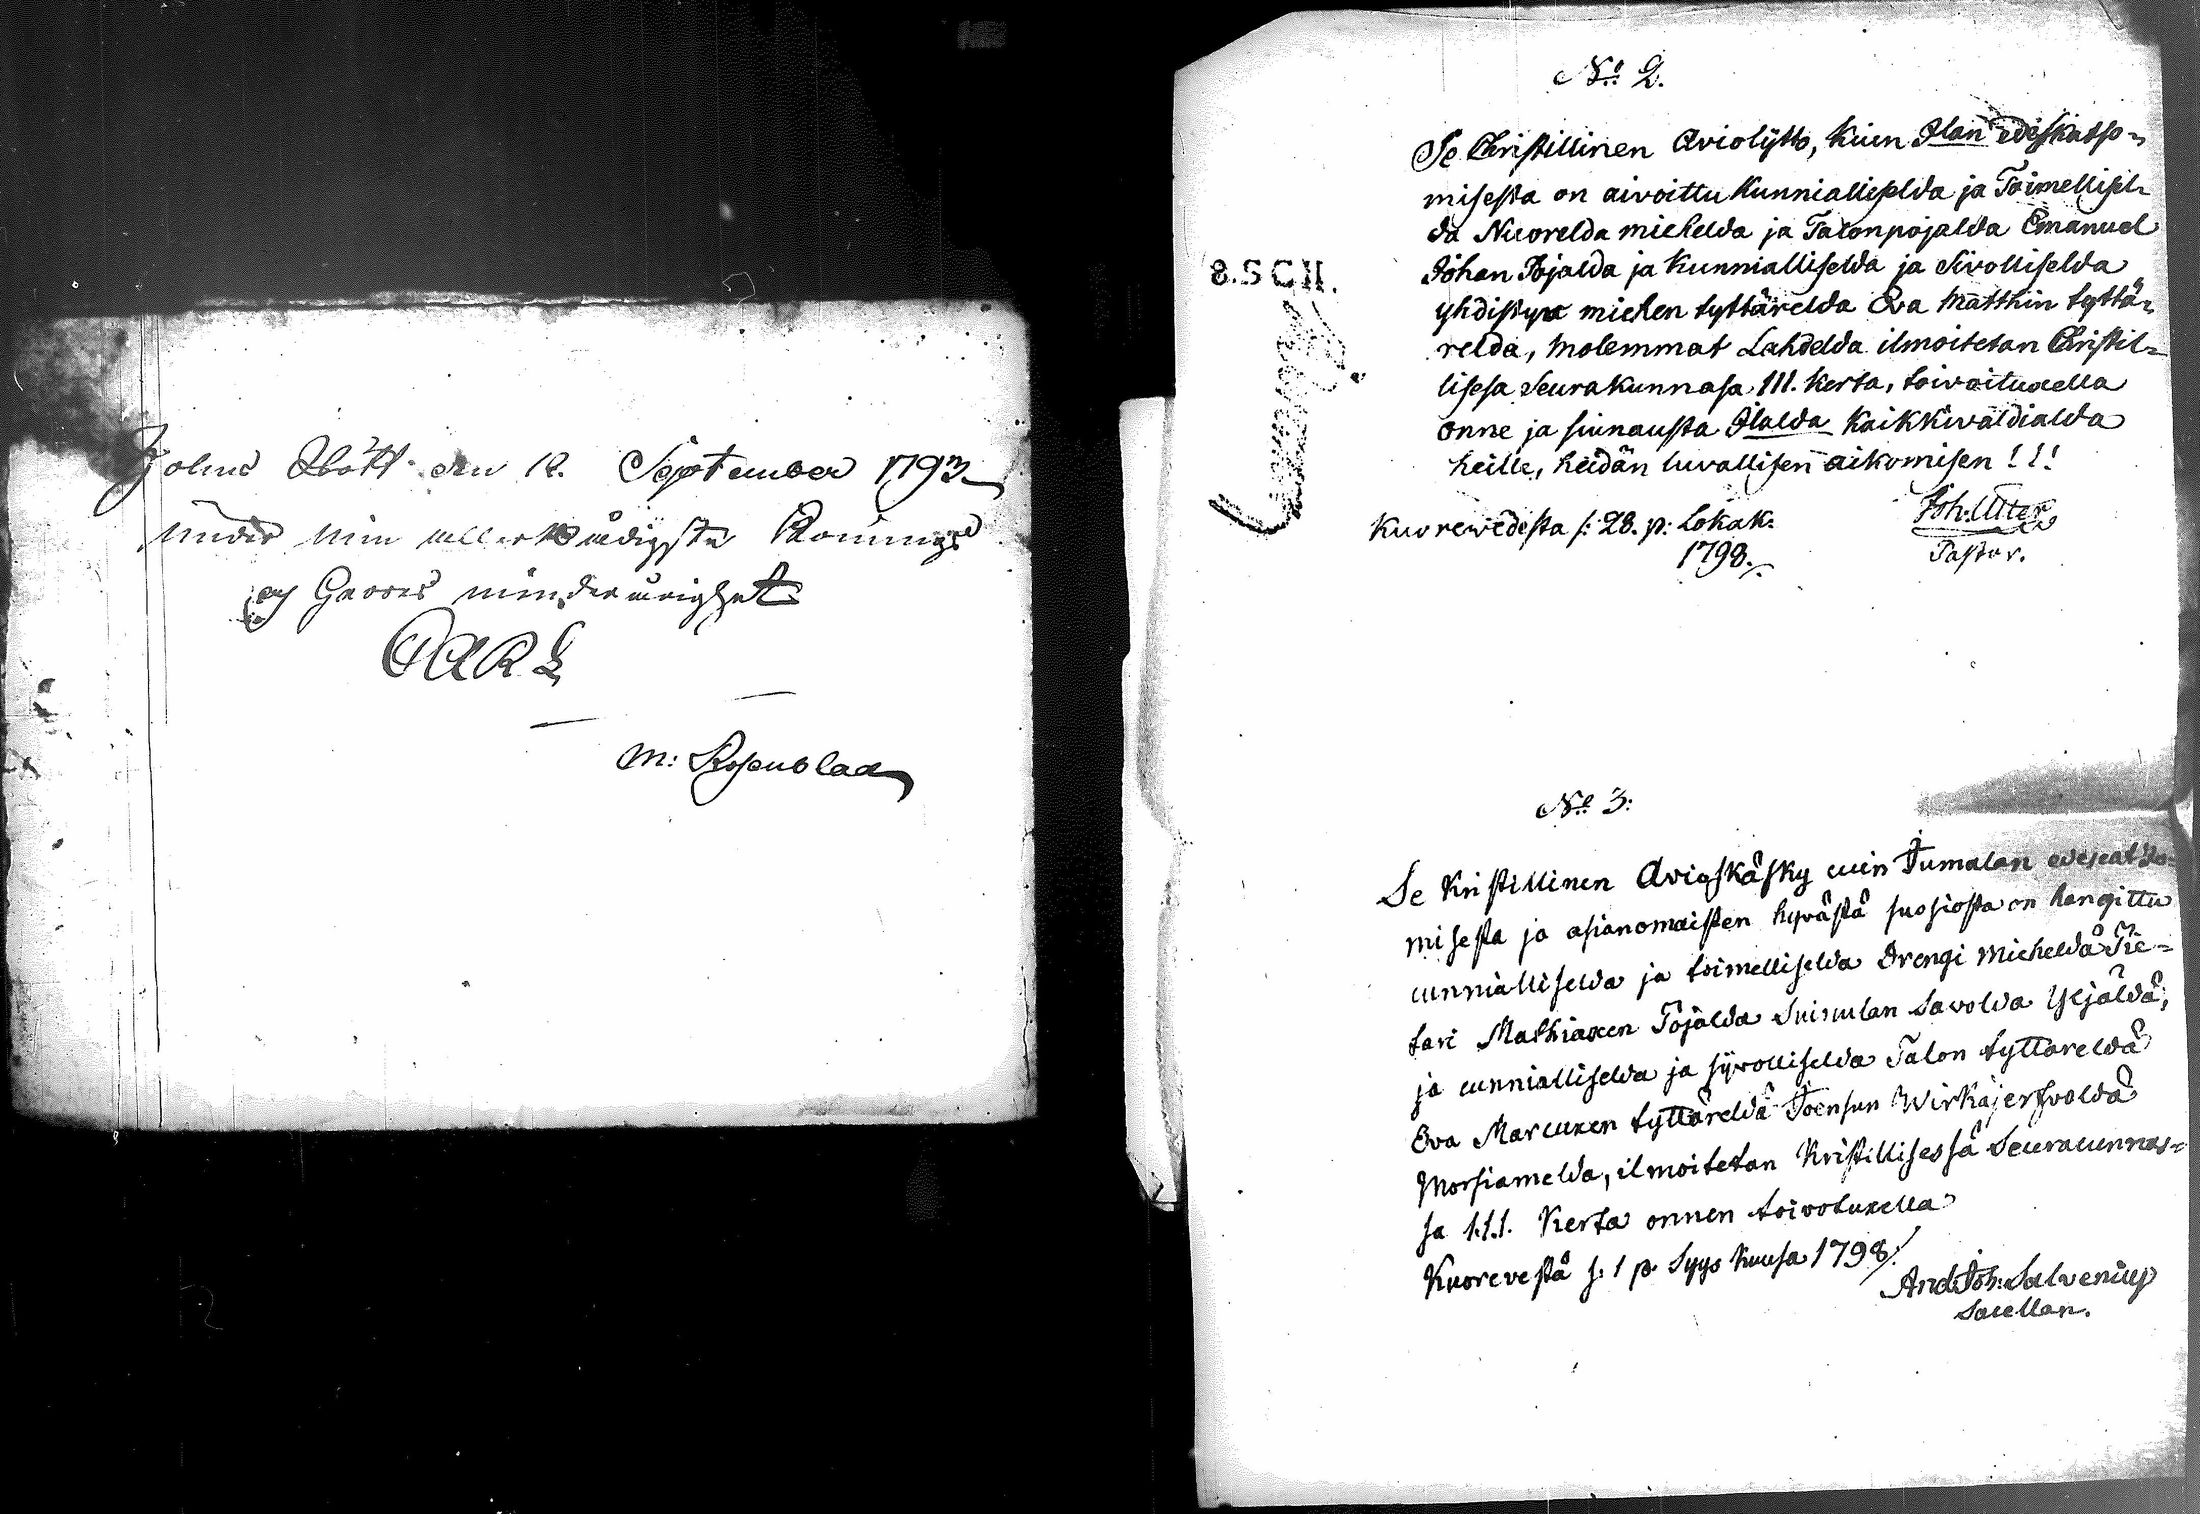 Holms Slått den 12. September 1793
Under min allernådigste Konungs
og Herres minderårighet
CARL
M: Rosenblad
8.SCH.
No 2.
Se Christillinen Aviolijtto, kuin Jlan edeskatso-
misesta on aivoittu kunnialliselda ja Toimellisel-
da Nuorelda miehelda ja Talonpojalda Emanuel
Johan Pojalda ja kunnialliselda ja Sivolliselda
yhdistys miehen tyttärelda Eva Matthin tyttä-
relda, molemmat Lahdelda ilmoitetan Christil-
lisesa Seurakunnasa III. kerta, toivoituxella
onne ja siunausta Jlalda kaikkivaldialda
heille, heidän luvallisen aikomisen!!!
Kuorevedesta s: 28. p: Lokak.
1798.
Joh: Uter
Pastor.
No 3:
Se Kristillinen Avioskäsky cuin Jumalan edescatzo-
misesta ja asianomaisten hyvästä suosiosta on hangittu
cunnialliselda ja toimelliselda Drengi Mieheldä Tie-
tari Mathiaxen Pojalda Suinulan Savolda Yljäldä,
ja cunnialliselda ja sijvolliselda Talon tyttäreldä
Eva Marcuxen tyttäreldä Joensun Wirkajerfvoldä
Morsiamelda, ilmoitetan Kristillisessä Seuracunnas-
sa I.I.I. Kerta onnen toivotuxella
Kuorevestä s. 1 p. Syys kuusa 1798.
And: Joh: Salvenius
Sacellan.